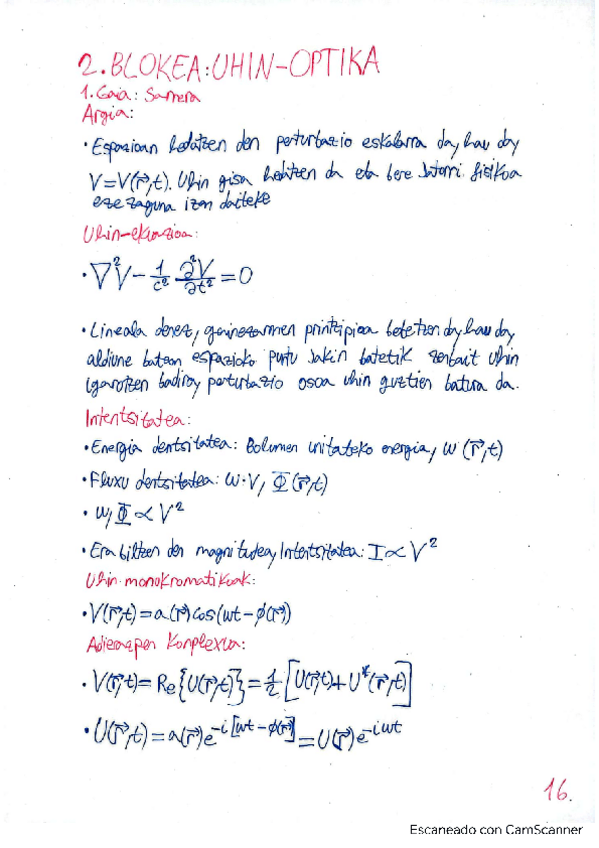 2. BLOKEA: UHIN-OPTIKA
1. Gaia: Sarrera
Argia:
• Espazioan hedatzen den perturbazio eskalarra da, hau da,
V=V(r⃗,t). Uhin gisa hedatzen da eta bere jatorri fisikoa
ezezaguna izan daiteke
Uhin-ekuazioa:
• ∇²V − 1/c² ∂²V/∂t² = 0
• Lineala denez, gainezarmen printzipioa betetzen da, hau da,
aldiune batean espazioko puntu jakin batetik zenbait uhin
igarotzen badira, perturbazio osoa uhin guztien batura da.
Intentsitatea:
• Energia dentsitatea: Bolumen unitateko energia, w(r⃗,t)
• Fluxu dentsitatea: w·V, Φ(r⃗,t)
• w, Φ ∝ V²
• Erabiltzen den magnitudea, Intentsitatea: I ∝ V²
Uhin monokromatikoak:
• V(r⃗,t)=a(r⃗)cos(wt−ϕ(r⃗))
Adierazpen konplexua:
• V(r⃗,t)=Re{U(r⃗,t)}=1/2[U(r⃗,t)+U*(r⃗,t)]
• U(r⃗,t)=a(r⃗)e^-i[wt−ϕ(r⃗)]=U(r⃗)e^-iwt
16.
Escaneado con CamScanner